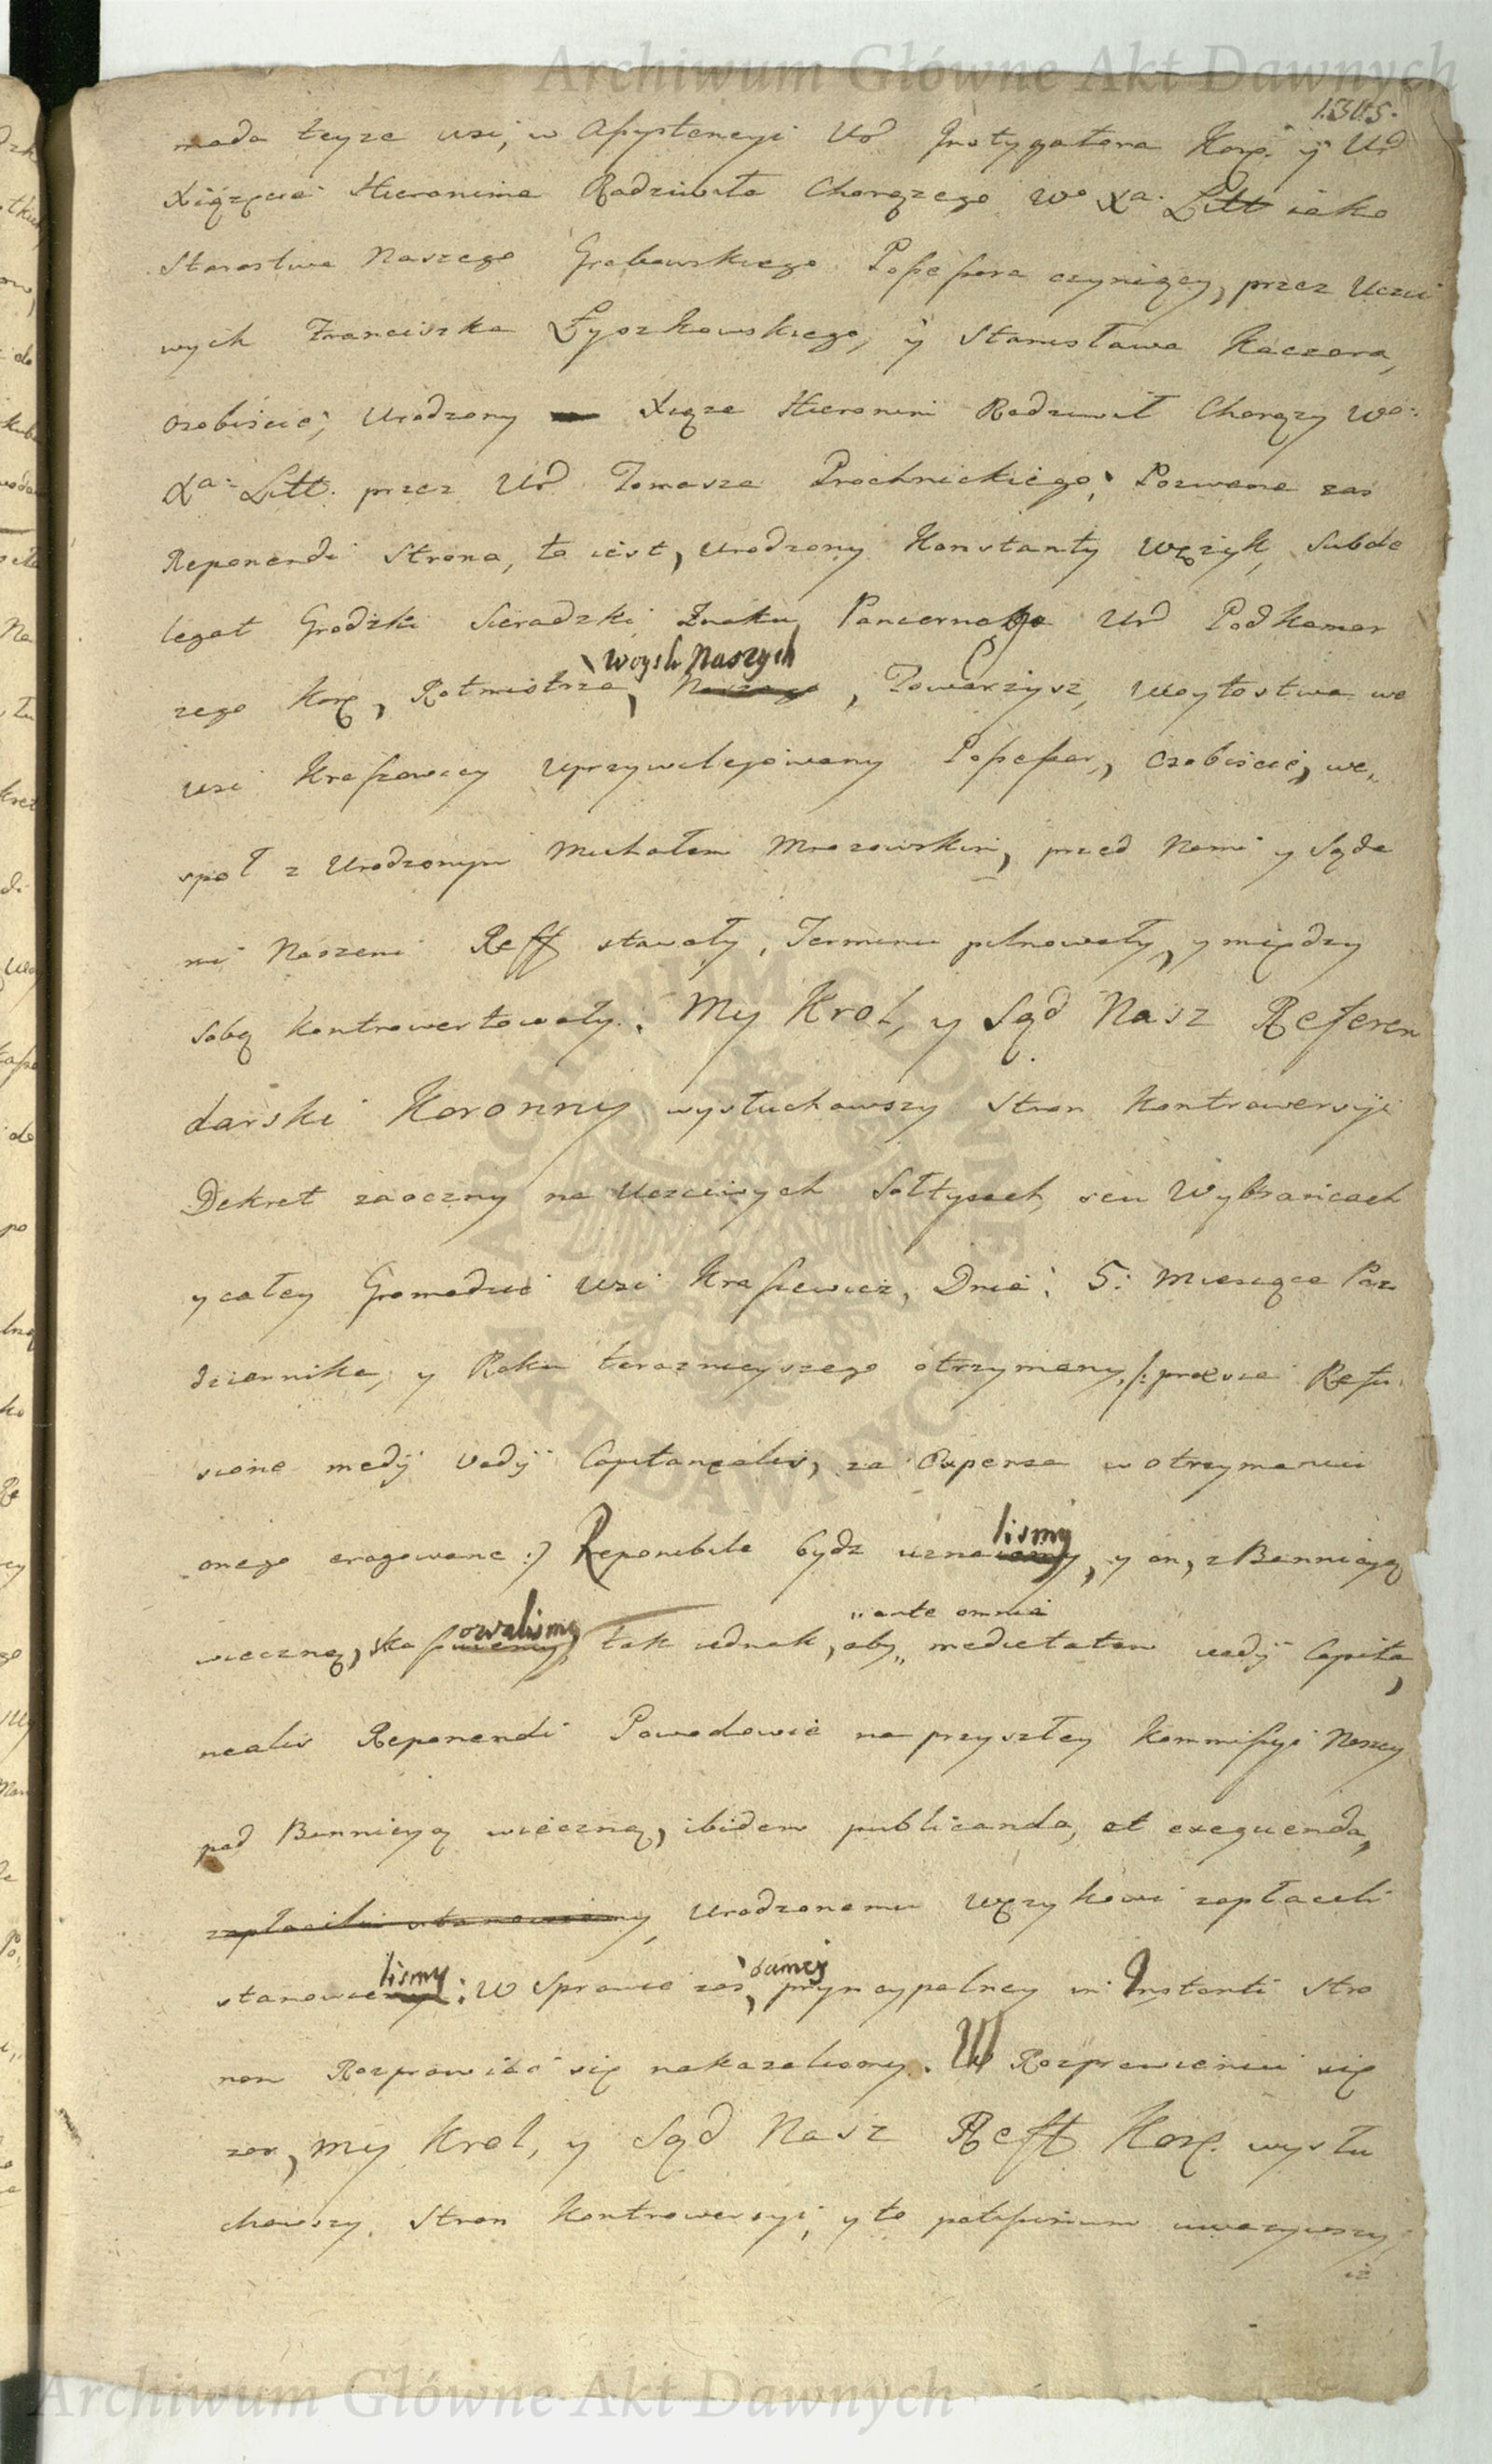 Archiwum Główne Akt Dawnych
1305.
mada teyze wsi, w Assystencyi Ur Instygatora Kor: y Ur
Xiązęcia Hieronima Radziwiła Chorązego Wo Xa: Litt iako
Starostwa Naszego Grabowskiego Possessora czyniący, przez Uczci
wych Franciszka Łyszkowskiego, y Stanisława Kaczora,
osobiscie, Urodzony Xiąze Hieronim Radziwił Chorązy Wo:
Xa: Litt: przez Ur Tomasza Prochnickiego; Pozwana zas
Reponendi Strona, to iest, Urodzony Konstanty Węzyk, Subde
legat Grodzki Sieradzki Znaku Pancernego Ur Podkomor
woysk Naszych
zego Kor, Rotmistrza, Naszego, Towarzysz, Woytostwa we
wsi Krassowicy uprzywilejowany Possessor, osobiscie, we,,
społ z Urodzonym Michałem Mrozowskim, przed Nami y Sąda
mi Naszemi Reff stawały, Terminu pilnowały, y między
sobą kontrowertowały. My Krol, y Sąd Nasz Referen
darski Koronny wysłuchawszy Stron Kontrowersyi
Dekret zaoczny na Uczciwych Sołtysach, seu Wybrancach
y całey Gromadzie Wsi Krassewicz, Dnia 5: Miesiąca Paz
dziernika, y Roku teraznieyszego otrzymany, /: praevia Refu
sione medij Vadij Capitanealis, za Expensa w otrzymaniu
lismy
onego erogowane :) Reponibile bydz uznaiemy, y on, z Bannicyą
owalismy ,,ante omnia
wieczną, skassuiemy, tak iednak, aby,, medietatem vadij Capita,
nealis Reponendi Powodowie na przyszłey Kommissyi Naszey
pod Bannicyą wieczną, ibidem publicanda, et exequenda,
zapłacili stanowiemy, Urodzonemu Węzykowi zapłacili
lismy samey
stanowiemy: W Sprawie zas, pryncypalney in Instanti Stro
nom Rozprawić się nakazalismy. W Rozprawieniu się
zas, my Krol, y Sąd Nasz Reff Kor. wysłu
chawszy Stron Kontrowersyi, y to potissimum uwazywszy,
iz
Archiwum Główne Akt Dawnych